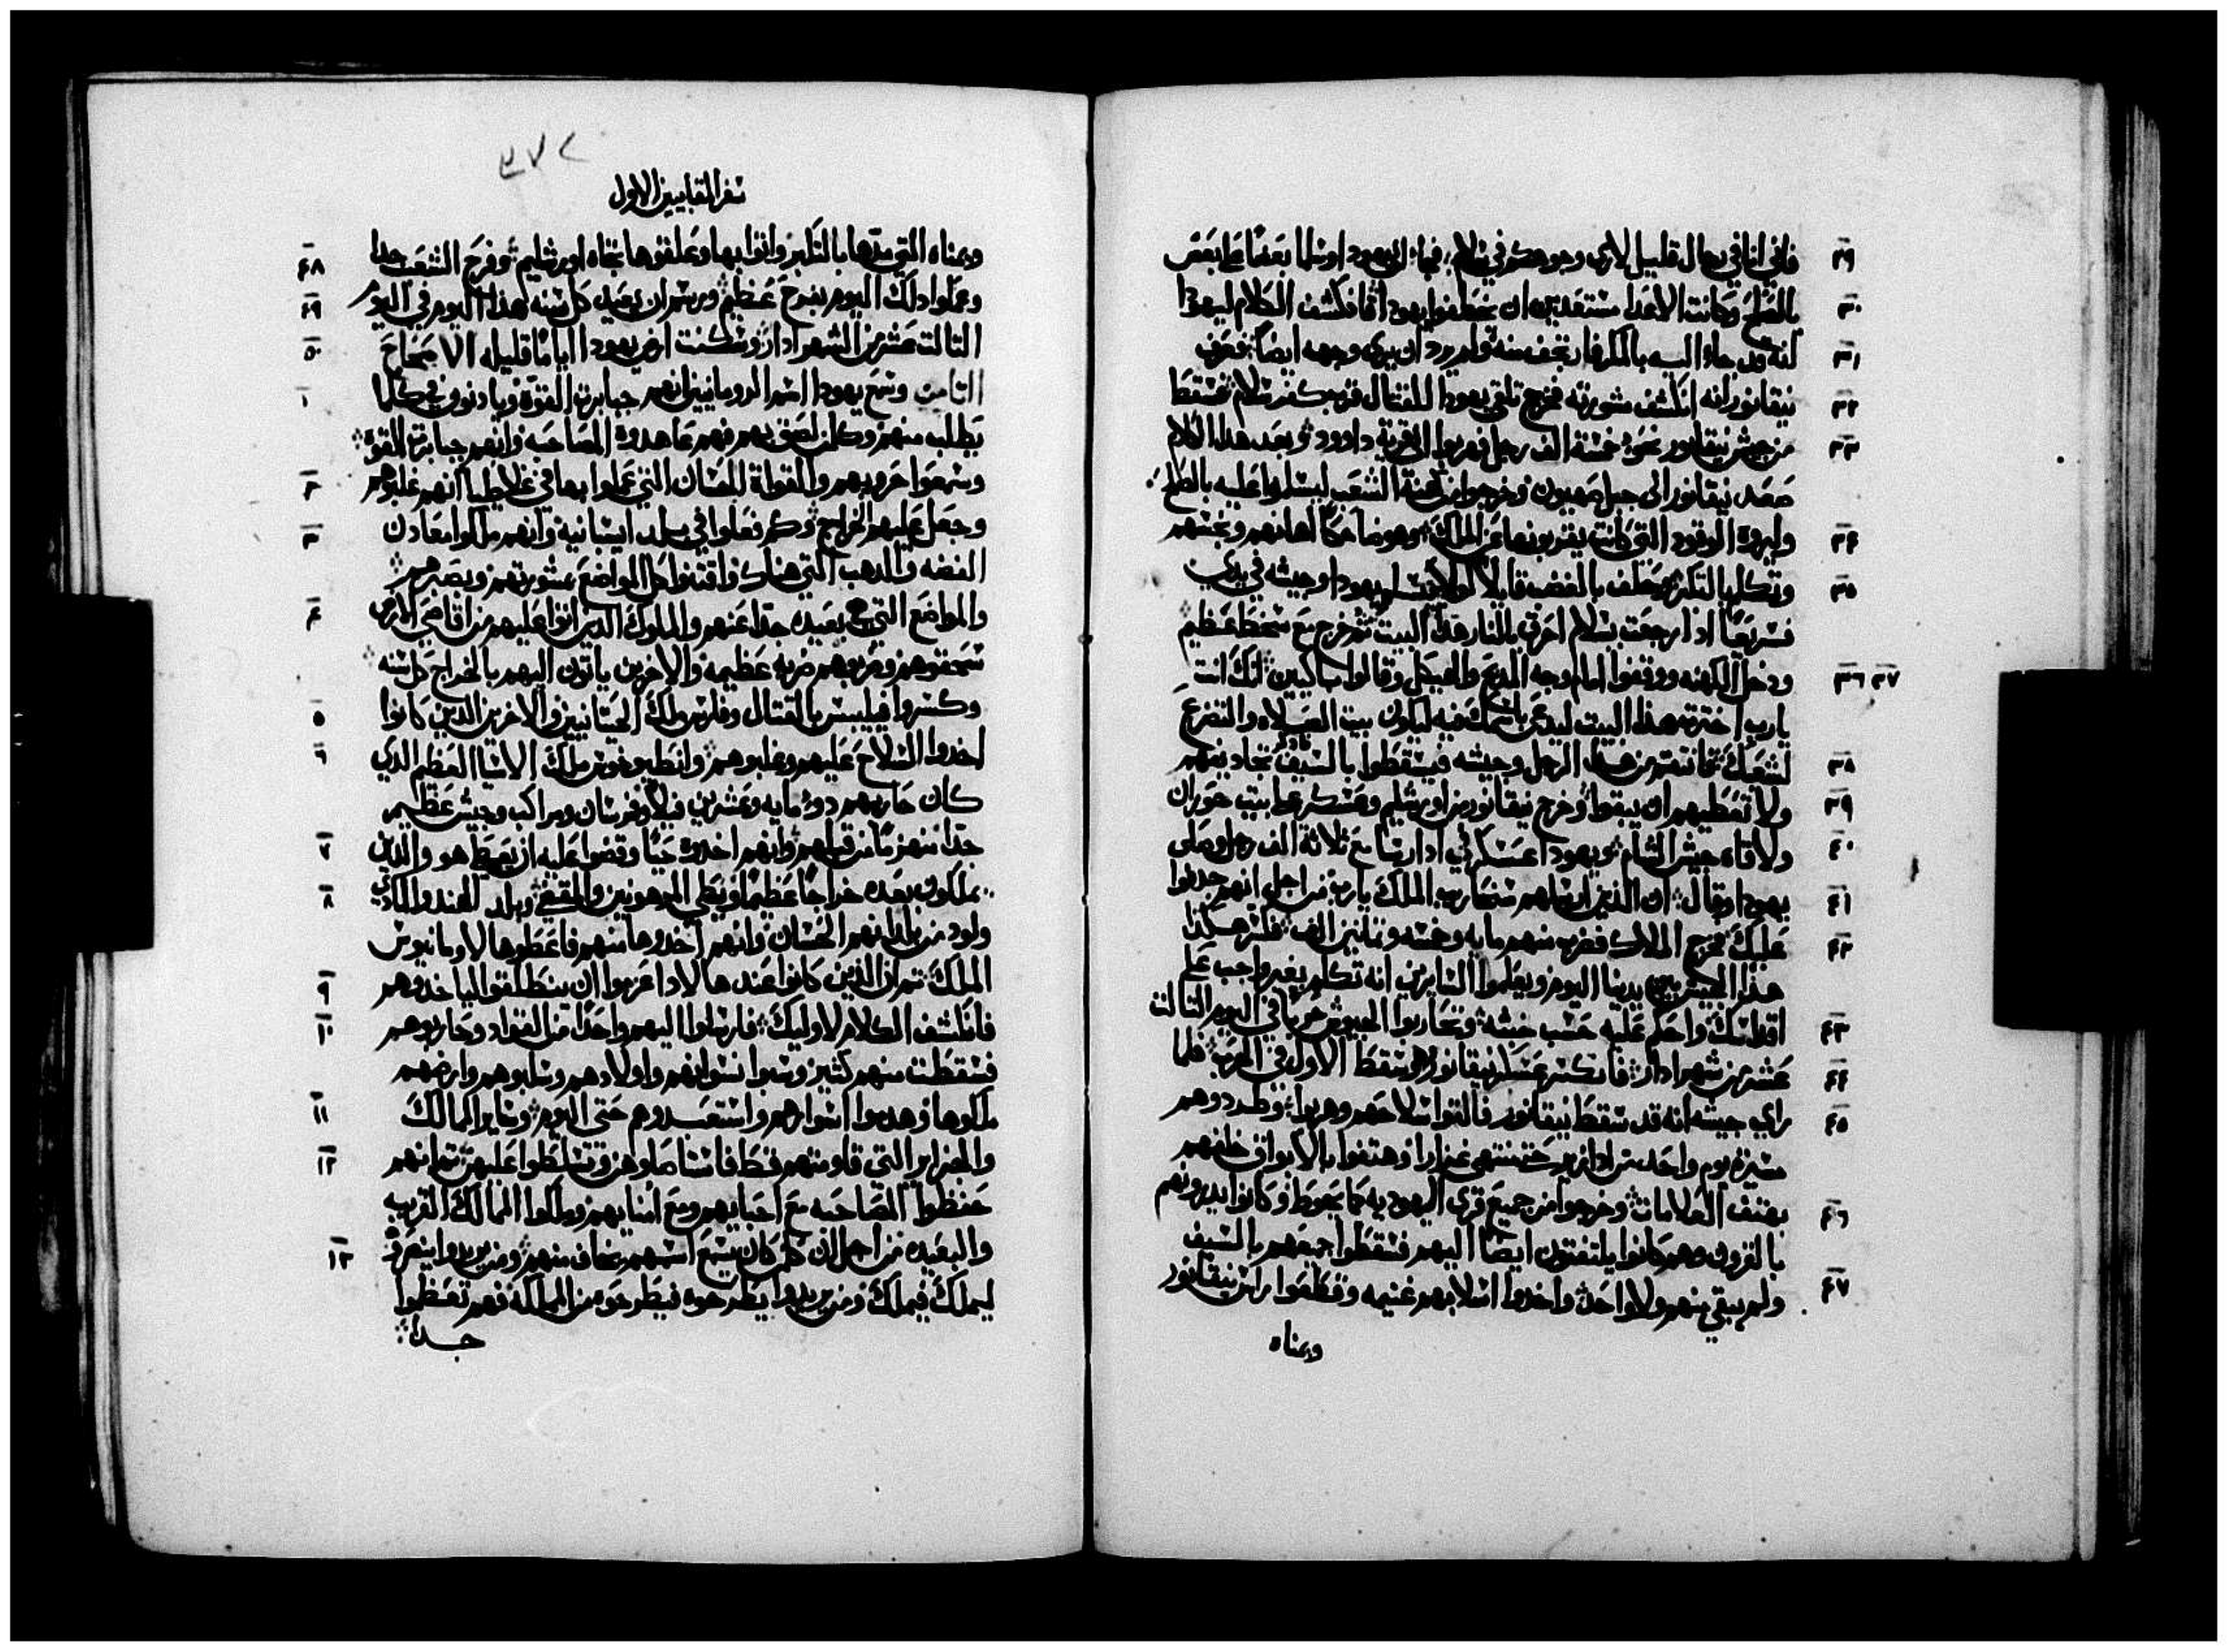 فاني انا في رجال قليل لاري وجوهكم في سلام فجاء الى يهودا وسلما بعضًا علي بعض
بالصلح وكانت الاعدا مستعدين ان يخطفوا يهودا فانكشف الكلام ليهودا
انه قد جاء اليه بالمكر فارتجف منه ولم يرد ان يري وجهه ايضًا فعرف
نيقانور انه انكشف مشورته فخرج تلقي يهودا للقتال قرب كفر سلام فسقط
من جيش نيقانور نحو خمسة الف رجل فهربوا الى قرية داوود وبعد هذا الكلام
صعد نيقانور الى جبل صهيون وخرجوا من كهنة الشعب ليسلموا عليه بالصلح
وليروه الوقود التي كانت يقربونها عن الملك وهو ضاحكًا اهانهم ونجسهم
وتكلم بالتكبر وحلف بالغضب قايلًا لولا تسلم يهودا وجيشه في يدي
فسريعًا اذا رجعت بسلام احرق بالنار هذا البيت ثم خرج مع سخط عظيم
ودخل الكهنه ووقفوا امام وجه المدبح والهيكل وقالوا باكيين انك انت
يارب اخترت هذا البيت ليدعى باسمك فيه ليكون بيت الصلاه والتضرع
لشعبك فانتقم من هذا الرجل وجيشه فيسقطوا بالسيف تجاديفهم
ولا تعطيهم ان يبقوا وخرج نيقانور من اورشليم وعسكر علي بيت حوران
ولاقاه جيش الشام ويهودا عسكر في ادارسا مع ثلاثة الف رجل وصلى
يهودا وقال ان الذين ارسلهم سنحاريب الملك يارب من اجل انهم جدفوا
عليك فخرج الملاك فضرب منهم مايه وخمسه وثمانين الف فلتكسر هكذا
هذا الجيش بين يدينا اليوم ويعلموا السايرين انه تكلم بغير واجب علي
اقداسك واحكم عليه حسب خبثه وتحاربوا الجيوش حربًا في اليوم الثالت
عشر من شهر ادار فانكسر عسكر نيقانور وهو سقط الاول في الحرب فلما
راي جيشه انه قد سقط نيقانور فالقوا سلاحهم وهربوا وطردوهم
مسيرة يوم واحد من ادازر حتى تنتهي غزارا وهتفوا بالابواق خلفهم
بهتف العلامات وخرجوا من جميع قري اليهوديه كما يحوط وكانوا يدرونهم
بالقرون وهم كانوا يلتفتون ايضًا اليهم فسقطوا جميعهم بالسيف
ولم يبقي منهم ولا واحد واخدوا اسلابهم غنيمه وقطعوا راس نيقانور
ويمناه
٢٩
٣٠
٣١
٣٢
٣٣
٣٤
٣٥
٣٦ ٣٧
٣٨
٣٩
٤٠
٤١
٤٢
٤٣
٤٤
٤٥
٤٦
٤٧
سفر المقابيين الاول
ويمناه التي مدها بالتكبر واتوا بها وعلقوها تجاه اورشليم وفرح الشعب جدا
وعملوا ذلك اليوم بفرح عظيم ورسم ان يعيد كل سنه هذا اليوم في اليوم
الثالت عشر من الشهر ادار وسكنت ارض يهودا اايامًا قليله الاصحاح
الثامن وسمع يهودا اسم الرومانيين انهم جبابرة القوة ويادنون في كلما
يطلب منهم وكلمن لصق بهم فهم عاهدوه المصاحبه وانهم جبابرة القوة
وسمعوا حروبهم والقواة الحسان التي عملوا بها في غلاطيا انهم غلبوهم
وجعل عليهم الخراج وكم فعلوا في بلد اسبانيه وانهم ملكوا معادن
الفضه والدهب التي هناك واقتنوا كل المواضع بمشورتهم وبصبرهم
والمواضع التي هي بعيده جدًا عنهم والملوك الدين اتوا عليهم من اقاصي الارض
سحقوهم وضربوهم ضربه عظيمه والاخرين ياتون اليهم بالخراج كل سنه
وكسروا فيليبس بالقتال وفارس ملك الحتانيين والاخرين الدين كانوا
اخدوا السلاح عليهم وغلبوهم وانطيوخوس ملك الاسيا العظم الدي
كان حاربهم دو مايه وعشرين فيلًا وفرسان ومراكب وجيش عظيم
جدًا منهزمًا من قبلهم وانهم اخدوه حيًا وقضوا عليه ان يعطي هو والدين
يملكون بعده خراجًا عظيمًا ويعطي المرهونين والمقضي وبلد الهند والمادي
ولود من بلدانهم الحسان وانهم اخدوها منهم فاعطوها لاومانيوس
الملك ثم ان الدين كانوا عند هالادا عزموا ان ينطلقوا لياخدوهم
فانكشف الكلام لاوليك فارسلوا اليهم واحدًا من القواد وحاربوهم
فسقطت منهم كثير وسبوا نسوانهم واولادهم وسلبوهم وارضهم
ملكوها وهدموا اسوارهم واستعبدوهم حتى اليوم وساير الممالك
والجزاير التي قاومتهم قط فاستاصلوهن وتسلطوا عليهن ثم انهم
حفظوا المصاحبه مع احبايهم ومع امنايهم وملكوا الممالك القرب
والبعيده من اجل ان كل من كان يسمع اسمهم يخاف منهم ومن يريدوا ينصروه
ليملك فيملك ومن يريدوا يطرحوه فيطرحوه من المملكه فهم تعظموا
جدا
٤٨
٤٩
٥٠
١
٢
٣
٤
٥
٦
٧
٨
٩
١٠
١١
١٢
١٣